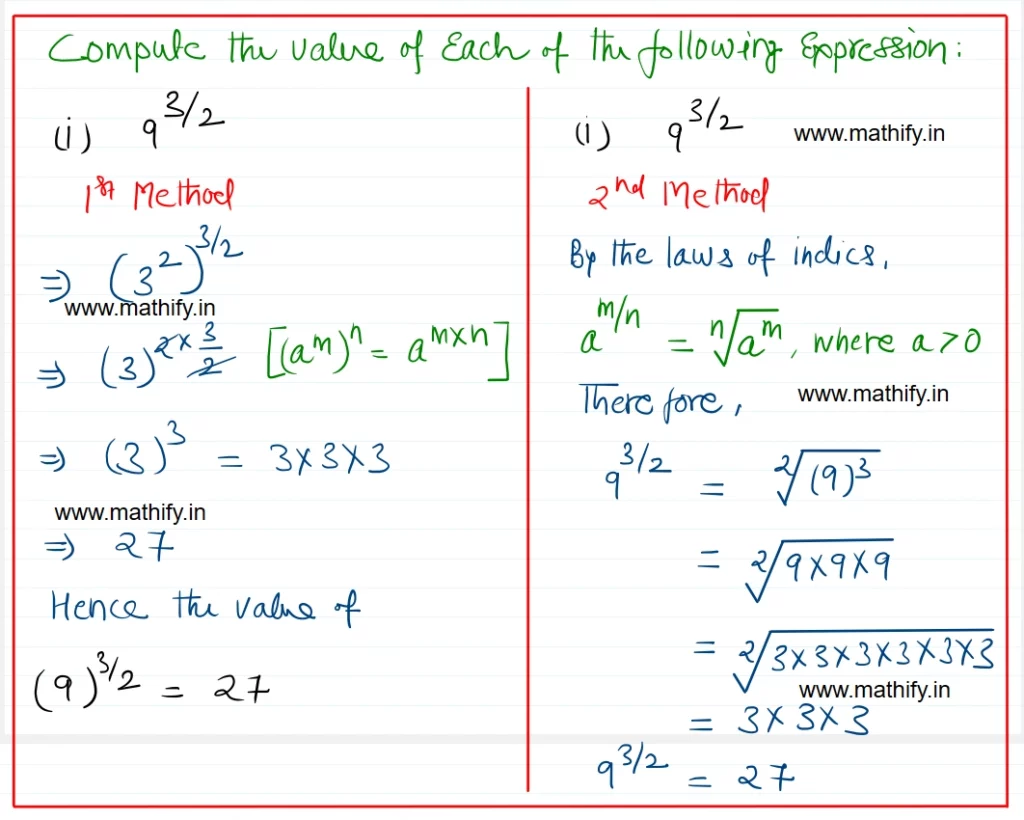 Compute the value of Each of the following Expression:
(i) 9^{3/2}
1st Method
⇒ (3^2)^{3/2}
www.mathify.in
⇒ (3)^{2×3/2} [(a^m)^n = a^{m×n}]
⇒ (3)^3 = 3×3×3
www.mathify.in
⇒ 27
Hence the value of
(9)^{3/2} = 27
(i) 9^{3/2} www.mathify.in
2nd Method
By the laws of indics,
a^{m/n} = ⁿ√a^m, where a>0
Therefore, www.mathify.in
9^{3/2} = ²√(9)^3
= ²√9×9×9
= ²√3×3×3×3×3×3
www.mathify.in
= 3×3×3
9^{3/2} = 27